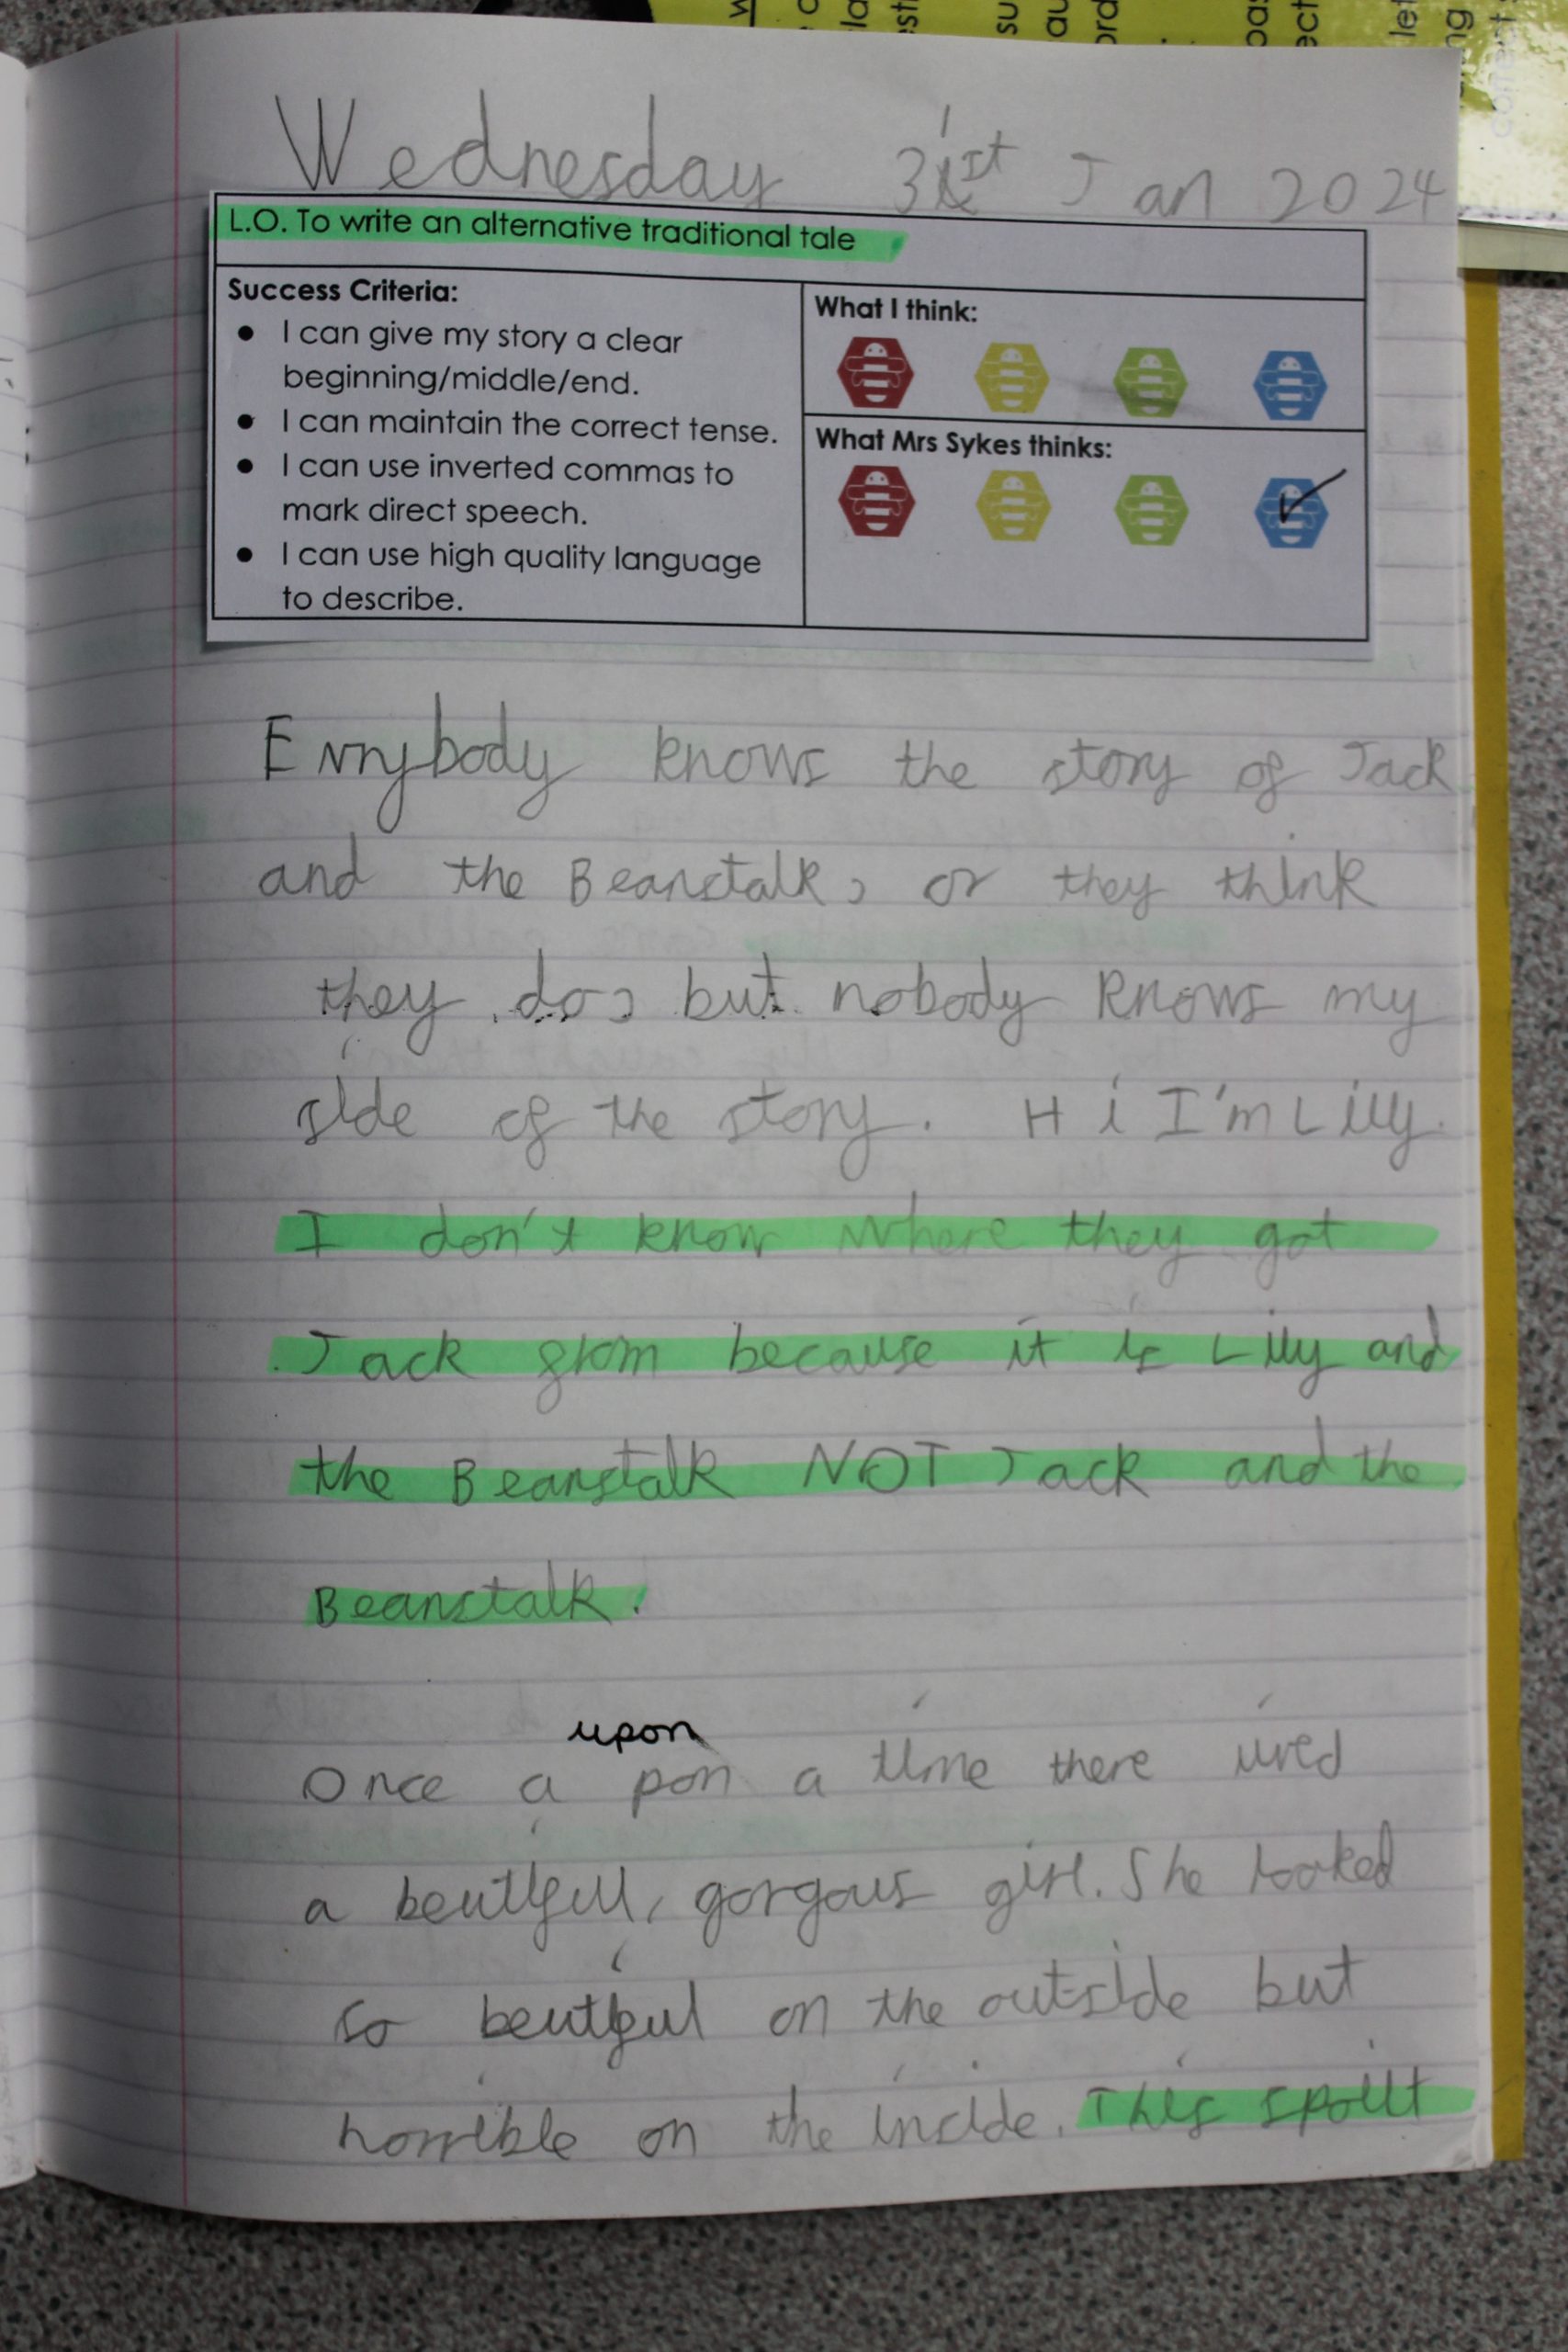 Wednesday 31st Jan 2024
L.O. To write an alternative traditional tale
Success Criteria:
● I can give my story a clear
beginning/middle/end.
● I can maintain the correct tense.
● I can use inverted commas to
mark direct speech.
● I can use high quality language
to describe.
What I think:
What Mrs Sykes thinks:
Evrybody knows the story of Jack
and the Beanstalk, or they think
they do, but nobody knows my
side of the story. Hi I'm Lilly.
I don't know where they got
Jack from because it is Lilly and
the Beanstalk NOT Jack and the
Beanstalk.
upon
Once a pon a time there lived
a beutifull, gorgous girl. She looked
so beutiful on the outside but
horrible on the inside. This spoilt